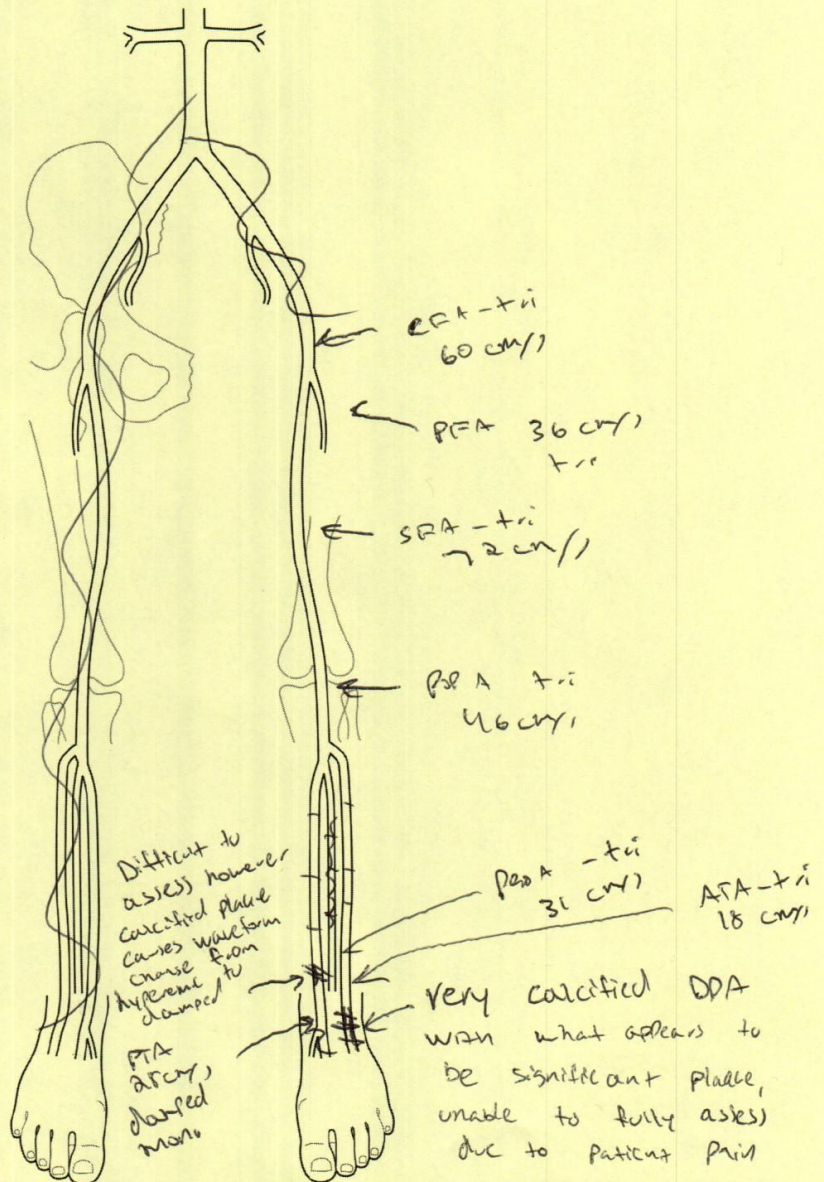 CFA - tri
60 cm/s
PFA 36 cm/s
tri
SFA - tri
72 cm/s
Pop A tri
46 cm/s
Difficult to
assess however
calcified plaque
causes waveform
change from
hyperemic to
damped
PerA - tri
31 cm/s
ATA - tri
18 cm/s
PTA
25 cm/s
damped
mono
Very calcified DPA
with what appears to
be significant plaque,
unable to fully assess
due to patient pain